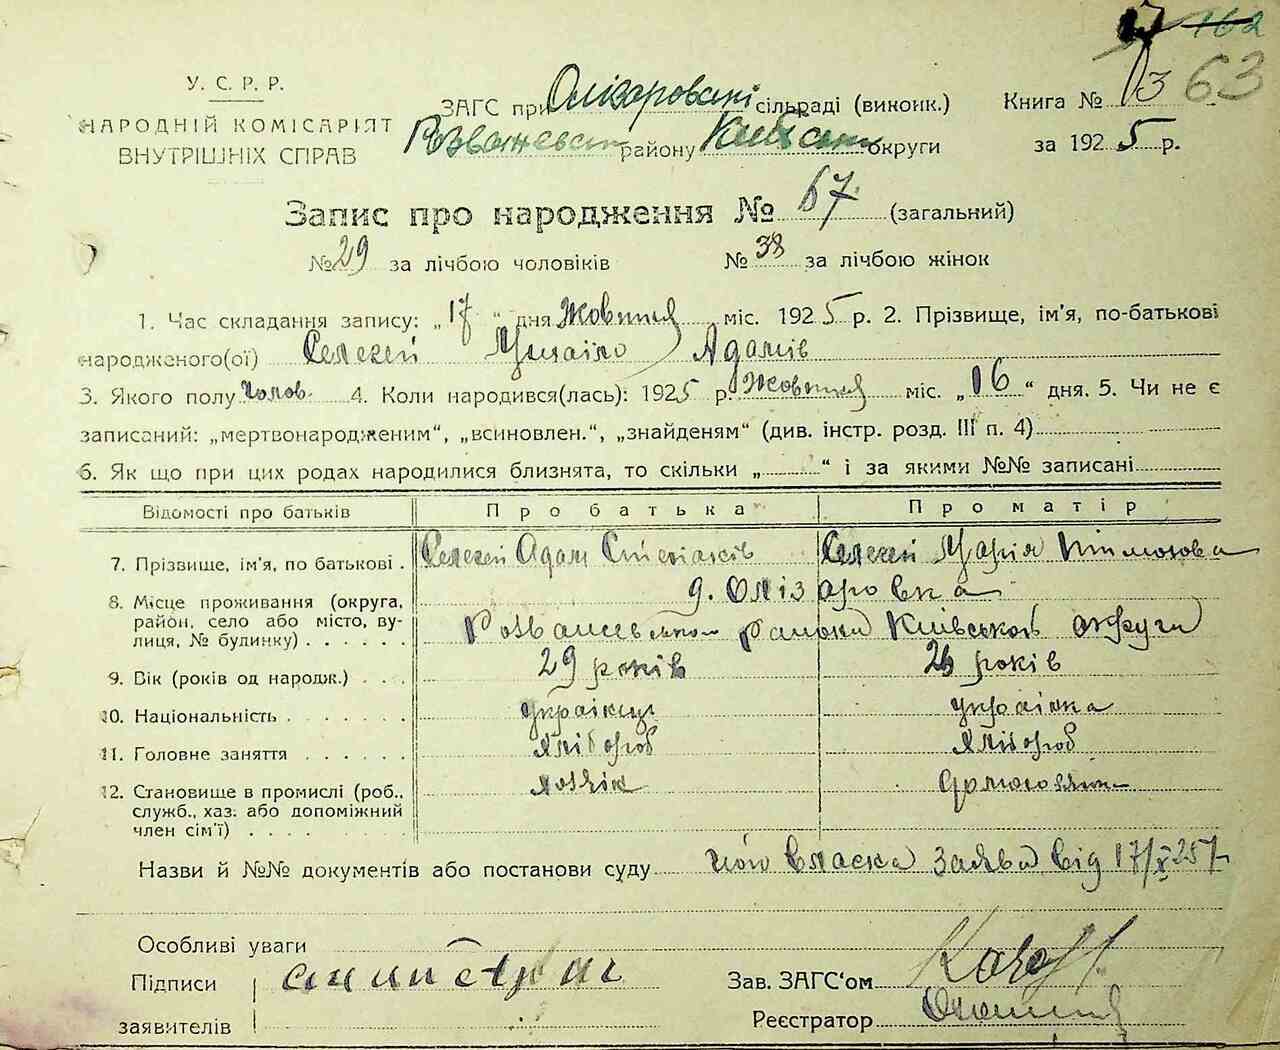 162
63
У. С. Р. Р.
НАРОДНІЙ КОМІСАРІЯТ
ВНУТРІШНІХ СПРАВ
ЗАГС при Олізаровскі сільраді (виконк.)
Розважевськ району Київськ округи
Книга № 3
за 1925 р.
Запис про народження № 67 (загальний)
№ 29 за лічбою чоловіків № 38 за лічбою жінок
1. Час складання запису: „17“ дня Жовтня міс. 1925 р. 2. Прізвище, ім'я, по-батькові
народженого(ої) Селехей Михайло Адамів
3. Якого полу Чолов. 4. Коли народився(лась): 1925 р. Жовтня міс. „16“ дня. 5. Чи не є
записаний: „мертвонародженим“, „всиновлен.“, „знайденям“ (див. інстр. розд. III п. 4)
6. Як що при цих родах народилися близнята, то скільки „ “ і за якими №№ записані
Відомості про батьків Про батька Про матір
7. Прізвище, ім'я, по батькові . Селехей Адам Степанків Селехей Марія Тимохова
8. Місце проживання (округа, район, село або місто, вулиця, № будинку) . . . . . . д. Олізаровка
Розважевського района Київської округи
9. Вік (років од народж.) . . . 29 років 26 років
10. Національність . . . . . . . українець українка
11. Головне заняття . . . . . . хлібороб хлібороб
12. Становище в промислі (роб., служб., хаз. або допоміжний член сім'ї) . . . . хозяїн домохозяйк
Назви й №№ документів або постанови суду його власна заява від 17/X 25 р
Особливі уваги
Підписи
заявителів
Зав. ЗАГС'ом
Реєстратор